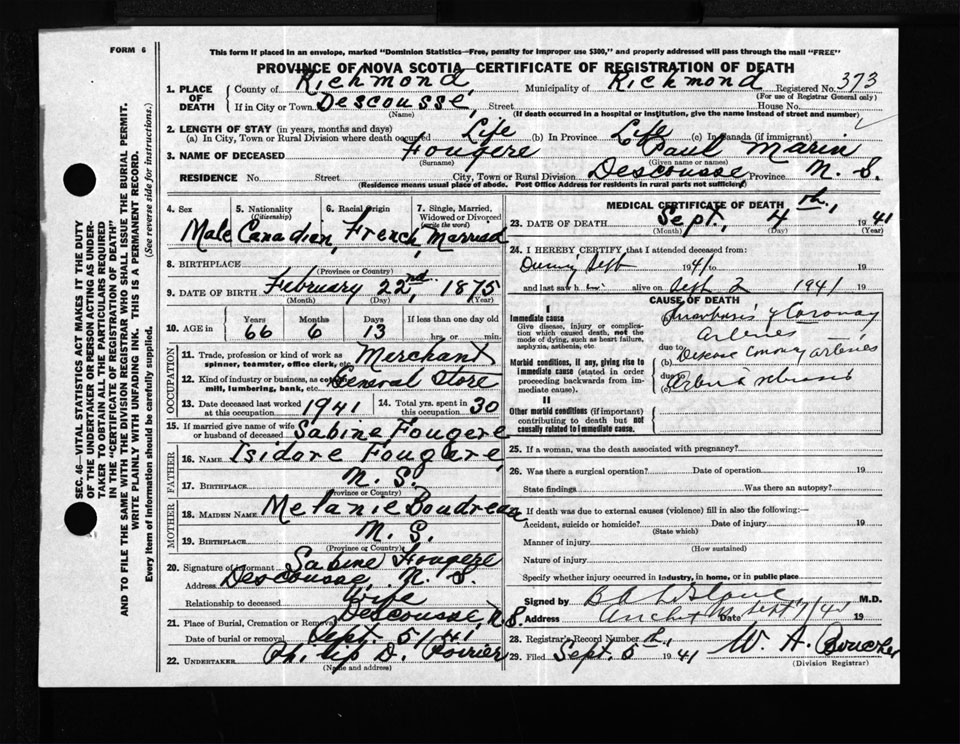 FORM 6
This form if placed in an envelope, marked "Dominion Statistics—Free, penalty for improper use $300," and properly addressed will pass through the mail "FREE"
PROVINCE OF NOVA SCOTIA—CERTIFICATE OF REGISTRATION OF DEATH
1. PLACE OF DEATH County of Richmond, Municipality of Richmond Registered No. 373
(For use of Registrar General only)
If in City or Town Descousse, Street House No.
(Name) (If death occurred in a hospital or institution, give the name instead of street and number)
2. LENGTH OF STAY (in years, months and days)
(a) In City, Town or Rural Division where death occurred Life (b) In Province Life (c) In Canada (if immigrant)
3. NAME OF DECEASED Fougere Paul Marin
(Surname) (Given name or names)
RESIDENCE No. Street City, Town or Rural Division Descousse, Province N. S.
(Residence means usual place of abode. Post Office Address for residents in rural parts not sufficient)
4. Sex 5. Nationality (Citizenship) 6. Racial Origin 7. Single, Married, Widowed or Divorced (write the word)
Male Canadian, French, Married
8. BIRTHPLACE
(Province or Country)
9. DATE OF BIRTH February 22nd, 1875
(Month) (Day) (Year)
10. AGE in Years Months Days If less than one day old
66 6 13 hrs. or min.
OCCUPATION
11. Trade, profession or kind of work as spinner, teamster, office clerk, etc. Merchant
12. Kind of industry or business, as cotton mill, lumbering, bank, etc. General Store
13. Date deceased last worked at this occupation 1941 14. Total yrs. spent in this occupation 30
15. If married give name of wife or husband of deceased Sabine Fougere
FATHER
16. NAME Isidore Fougere
17. BIRTHPLACE N. S.
(Province or Country)
MOTHER
18. MAIDEN NAME Melanie Boudreau
19. BIRTHPLACE N. S.
(Province or Country)
20. Signature of informant Sabine Fougere
Address Descousse, N. S.
Relationship to deceased Wife
21. Place of Burial, Cremation or Removal Descousse, N.S.
Date of burial or removal Sept. 5/41
22. UNDERTAKER Philip D. Poirier
(Name and address)
MEDICAL CERTIFICATE OF DEATH
23. DATE OF DEATH Sept. 4th, 1941
(Month) (Day) (Year)
24. I HEREBY CERTIFY that I attended deceased from:
During Sept 1941 to 19
and last saw h alive on Sept 2 1941 19
CAUSE OF DEATH
I
Immediate cause
Give disease, injury or complication which caused death, not the mode of dying, such as heart failure, asphyxia, asthenia, etc.
Coronary Arteries
due to
Morbid conditions, if any, giving rise to immediate cause (stated in order proceeding backwards from immediate cause).
(b) Disease Coronary arteries
due to
(c)
II
Other morbid conditions (if important) contributing to death but not causally related to immediate cause.
25. If a woman, was the death associated with pregnancy?
26. Was there a surgical operation? Date of operation 19
State findings Was there an autopsy?
27. If death was due to external causes (violence) fill in also the following:—
Accident, suicide or homicide? Date of injury 19
(State which)
Manner of injury
(How sustained)
Nature of injury
Specify whether injury occurred in industry, in home, or in public place
Signed by M.D.
Address Date Sept 19
28. Registrar's Record Number
29. Filed Sept. 5th, 1941 W. A. Boucher
(Division Registrar)
SEC. 46—VITAL STATISTICS ACT MAKES IT THE DUTY
OF THE UNDERTAKER OR PERSON ACTING AS UNDER-
TAKER TO OBTAIN ALL THE PARTICULARS REQUIRED
IN THE "CERTIFICATE OF REGISTRATION OF DEATH"
AND TO FILE THE SAME WITH THE DIVISION REGISTRAR WHO SHALL ISSUE THE BURIAL PERMIT.
WRITE PLAINLY WITH UNFADING INK. THIS IS A PERMANENT RECORD.
Every item of information should be carefully supplied. (See reverse side for instructions.)